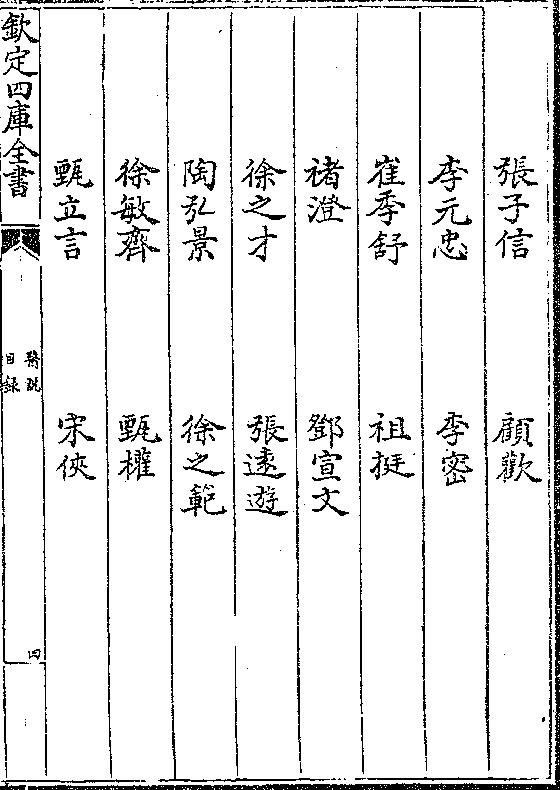 張子信 顧歡
李元忠 李密
崔季舒 祖挺
褚澄 鄧宣文
徐之才 張遠遊
陶弘景 徐之範
徐敏齊 甄權
甄立言 宋俠
欽定四庫全書
醫說
目録
四